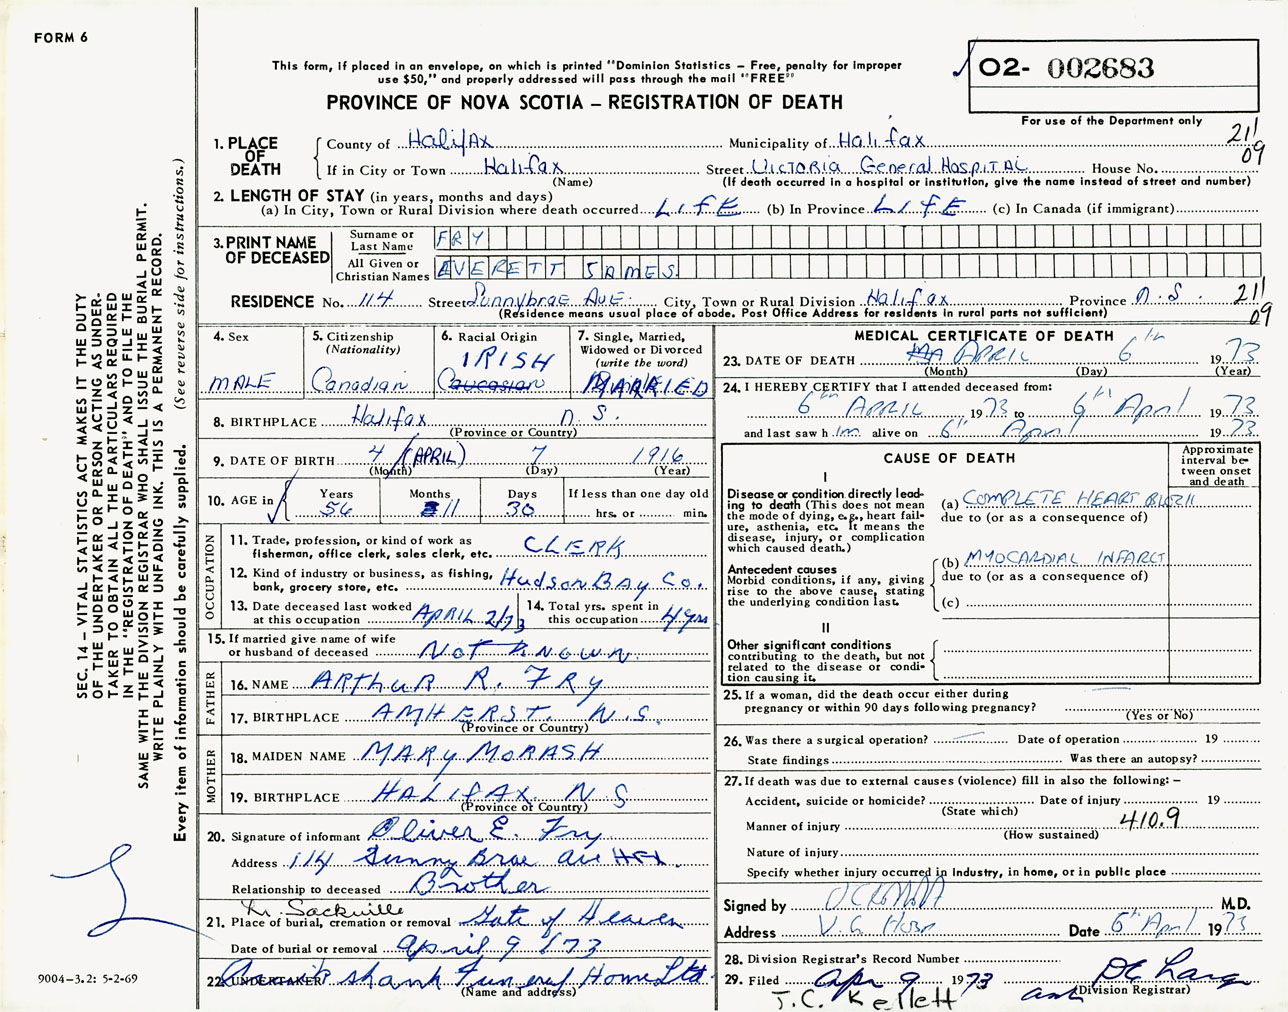 FORM 6
O2- 002683
This form, if placed in an envelope, on which is printed "Dominion Statistics – Free, penalty for improper
use $50," and properly addressed will pass through the mail "FREE"
PROVINCE OF NOVA SCOTIA – REGISTRATION OF DEATH
For use of the Department only
1. PLACE OF DEATH
County of HalifAx Municipality of Halifax 21
If in City or Town Halifax Street Victoria General Hospital House No. 09
(Name) (If death occurred in a hospital or institution, give the name instead of street and number)
2. LENGTH OF STAY (in years, months and days)
(a) In City, Town or Rural Division where death occurred LifE (b) In Province LifE (c) In Canada (if immigrant)
3. PRINT NAME OF DECEASED
Surname or Last Name FRY
All Given or Christian Names EVERETT JAMES
RESIDENCE No. 114 Street Sunnybrae Ave. City, Town or Rural Division Halifax Province N.S. 21
(Residence means usual place of abode. Post Office Address for residents in rural parts not sufficient) 09
SEC. 14 – VITAL STATISTICS ACT MAKES IT THE DUTY
OF THE UNDERTAKER OR PERSON ACTING AS UNDER-
TAKER TO OBTAIN ALL THE PARTICULARS REQUIRED
IN THE "REGISTRATION OF DEATH" AND TO FILE THE
SAME WITH THE DIVISION REGISTRAR WHO SHALL ISSUE THE BURIAL PERMIT.
WRITE PLAINLY WITH UNFADING INK. THIS IS A PERMANENT RECORD.
Every item of information should be carefully supplied. (See reverse side for instructions.)
4. Sex
MALE
5. Citizenship
(Nationality)
Canadian
6. Racial Origin
IRISH
Caucasian
7. Single, Married,
Widowed or Divorced
(write the word)
MARRIED
8. BIRTHPLACE Halifax N.S.
(Province or Country)
9. DATE OF BIRTH 4 (APRIL) 7 1916
(Month) (Day) (Year)
10. AGE in
Years Months Days If less than one day old
56 11 30 hrs. or min.
OCCUPATION
11. Trade, profession, or kind of work as
fisherman, office clerk, sales clerk, etc. CLERK
12. Kind of industry or business, as fishing,
bank, grocery store, etc. Hudson Bay Co.
13. Date deceased last worked
at this occupation APRIL 2/73
14. Total yrs. spent in
this occupation 4 yrs
15. If married give name of wife
or husband of deceased Not Known.
FATHER
16. NAME ARThUR R. FRY
17. BIRTHPLACE AMHERST. N.S.
(Province or Country)
MOTHER
18. MAIDEN NAME MARY MORASH
19. BIRTHPLACE HALIfAX N S
(Province or Country)
20. Signature of informant Oliver E. Fry
Address 114 Sunny Brae ave HFX.
Relationship to deceased Brother
Sackville
21. Place of burial, cremation or removal Gate of Heaven
Date of burial or removal April 9 /73
22. UNDERTAKER Cruikshank Funeral Home Ltd
(Name and address)
9004-3.2: 5-2-69
MEDICAL CERTIFICATE OF DEATH
23. DATE OF DEATH APRIL 6th 1973
(Month) (Day) (Year)
24. I HEREBY CERTIFY that I attended deceased from:
6th APRIL 1973 to 6th April 1973
and last saw him alive on 6th April 1973
CAUSE OF DEATH
Approximate
interval be-
tween onset
and death
I
Disease or condition directly lead-
ing to death (This does not mean
the mode of dying, e.g., heart fail-
ure, asthenia, etc. It means the
disease, injury, or complication
which caused death.)
(a) COMPLETE HEART BLOCK
due to (or as a consequence of)
Antecedent causes
Morbid conditions, if any, giving
rise to the above cause, stating
the underlying condition last.
(b) MYOCARDIAL INFARCT
due to (or as a consequence of)
(c)
II
Other significant conditions
contributing to the death, but not
related to the disease or condi-
tion causing it.
25. If a woman, did the death occur either during
pregnancy or within 90 days following pregnancy?
(Yes or No)
26. Was there a surgical operation? Date of operation 19
State findings Was there an autopsy?
27. If death was due to external causes (violence) fill in also the following: –
Accident, suicide or homicide? Date of injury 19
(State which)
Manner of injury 410.9
(How sustained)
Nature of injury
Specify whether injury occurred in industry, in home, or in public place
Signed by M.D.
Address V.G. Hosp Date 6th April 1973
28. Division Registrar's Record Number
29. Filed Apr 9 1973
(Division Registrar)
J.C. Kellett